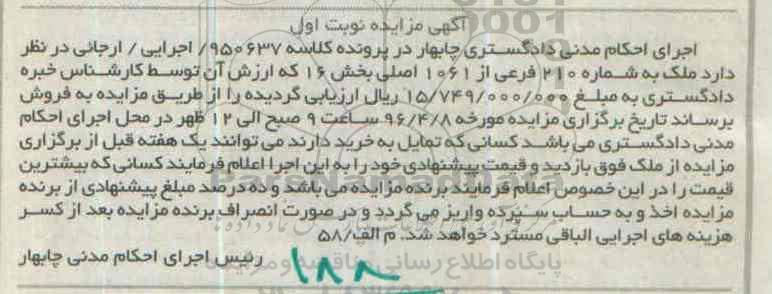 آگهی مزایده نوبت اول
اجرای احکام مدنی دادگستری چابهار در پرونده کلاسه ۹۵۰۶۳۷/ اجرایی / ارجائی در نظر
دارد ملک به شماره ۲۱۰ فرعی از ۱۰۶۱ اصلی بخش ۱۶ که ارزش آن توسط کارشناس خبره
دادگستری به مبلغ ۱۵/۷۴۹/۰۰۰/۰۰۰ ریال ارزیابی گردیده را از طریق مزایده به فروش
برساند تاریخ برگزاری مزایده مورخه ۹۶/۴/۸ ساعت ۹ صبح الی ۱۲ ظهر در محل اجرای احکام
مدنی دادگستری می باشد کسانی که تمایل به خرید دارند می توانند یک هفته قبل از برگزاری
مزایده از ملک فوق بازدید و قیمت پیشنهادی خود را به این اجرا اعلام فرمایند کسانی که بیشترین
قیمت را در این خصوص اعلام فرمایند برنده مزایده می باشد و ده درصد مبلغ پیشنهادی از برنده
مزایده اخذ و به حساب سپرده واریز می گردد و در صورت انصراف برنده مزایده بعد از کسر
هزینه های اجرایی الباقی مسترد خواهد شد. م الف/۵۸
رئیس اجرای احکام مدنی چابهار
۱۸۸
پایگاه اطلاع رسانی مناقصه و مزایده